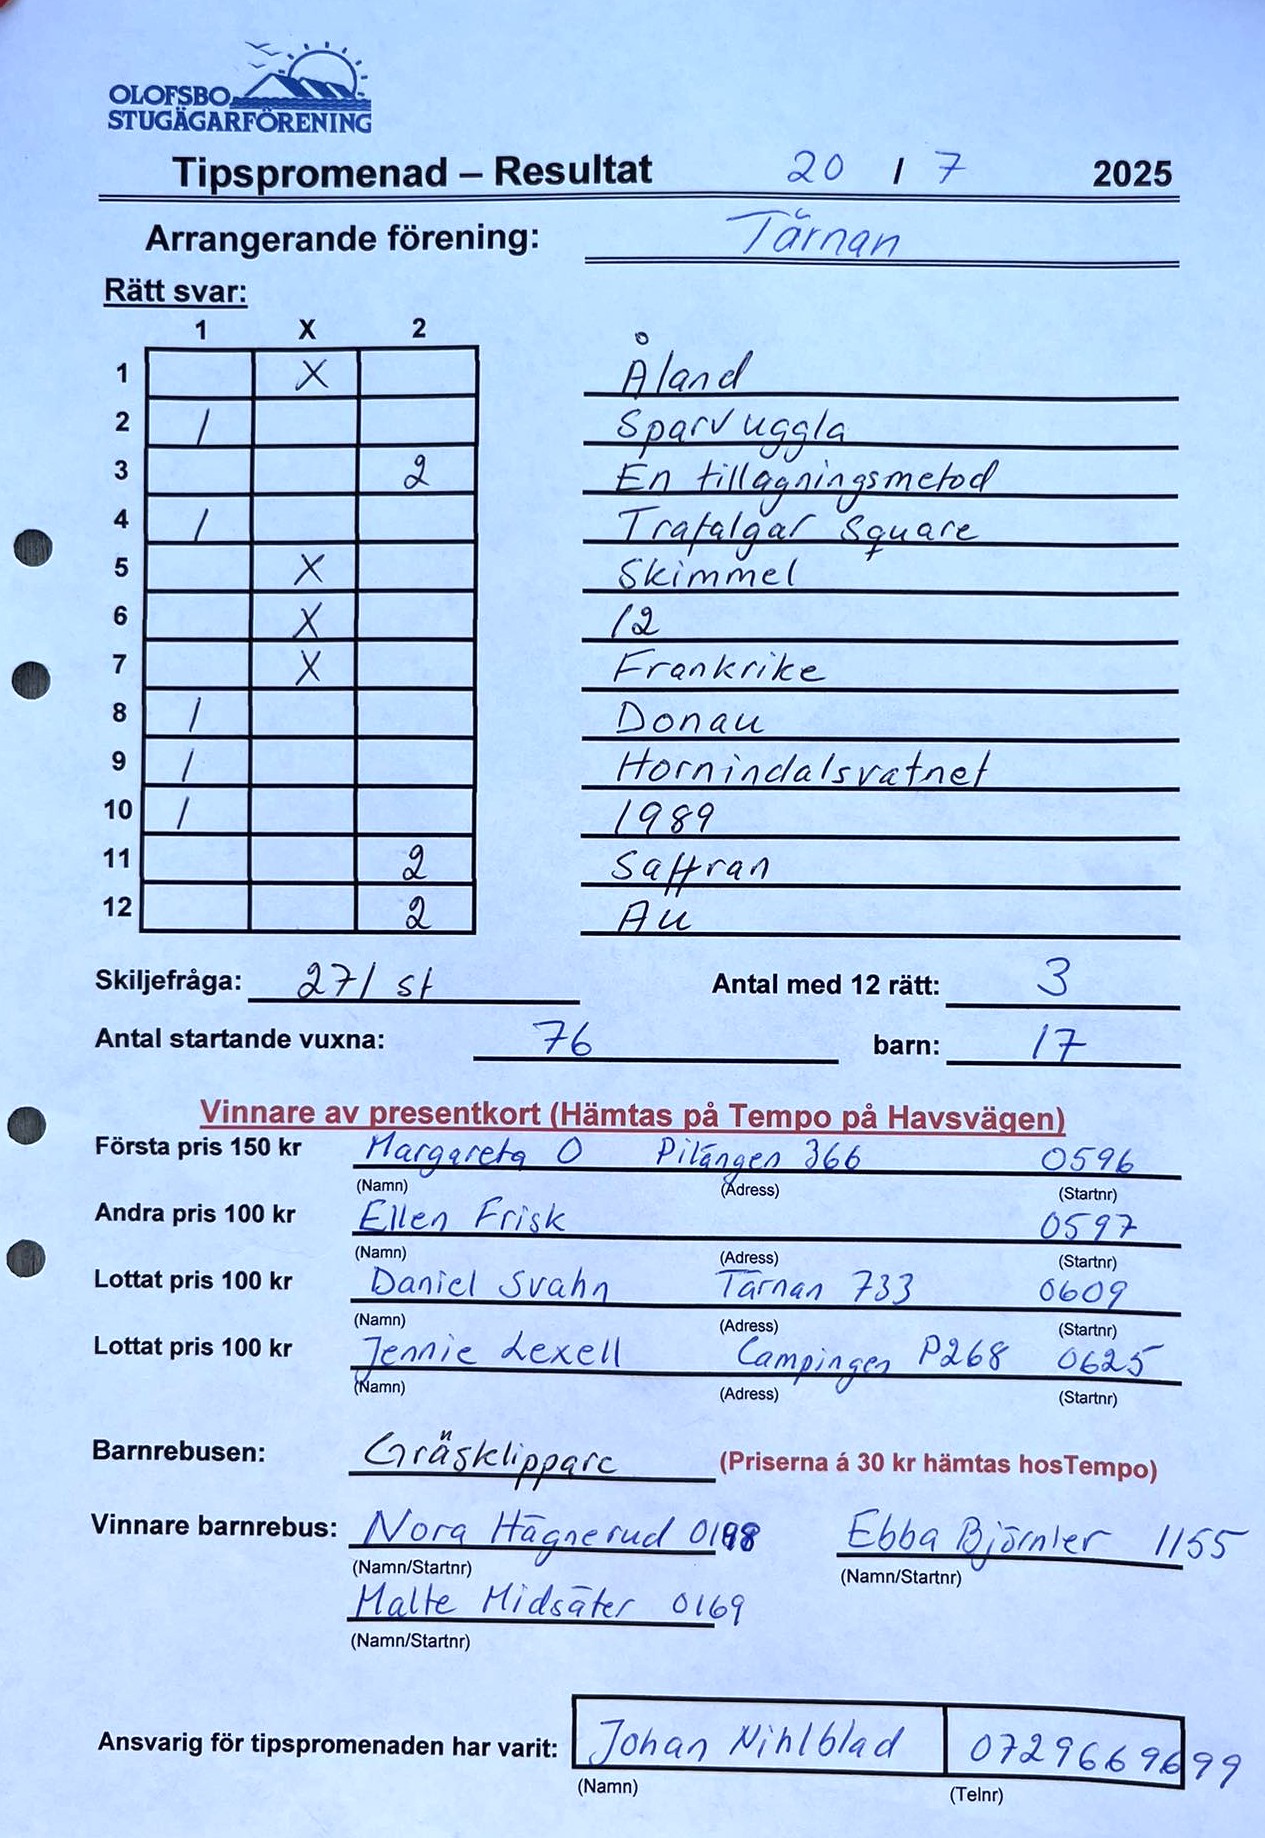 OLOFSBO
STUGÄGARFÖRENING
Tipspromenad – Resultat 20 / 7 2025
Arrangerande förening: Tärnan
Rätt svar:
1 X 2
1 X Åland
2 1 Sparvuggla
3 2 En tillagningsmetod
4 1 Trafalgar Square
5 X Skimmel
6 X 12
7 X Frankrike
8 1 Donau
9 1 Hornindalsvatnet
10 1 1989
11 2 Saffran
12 2 Au
Skiljefråga: 271 st Antal med 12 rätt: 3
Antal startande vuxna: 76 barn: 17
Vinnare av presentkort (Hämtas på Tempo på Havsvägen)
Första pris 150 kr Margareta O Pilängen 366 0596
(Namn) (Adress) (Startnr)
Andra pris 100 kr Ellen Frisk 0597
(Namn) (Adress) (Startnr)
Lottat pris 100 kr Daniel Svahn Tärnan 733 0609
(Namn) (Adress) (Startnr)
Lottat pris 100 kr Jennie Lexell Campingen P268 0625
(Namn) (Adress) (Startnr)
Barnrebusen: Gräsklippare (Priserna á 30 kr hämtas hosTempo)
Vinnare barnrebus: Nora Hägnerud Ebba Björnler 1155
(Namn/Startnr) (Namn/Startnr)
Malte Midsäter 0169
(Namn/Startnr)
Ansvarig för tipspromenaden har varit: Johan Nihlblad 0729669699
(Namn) (Telnr)